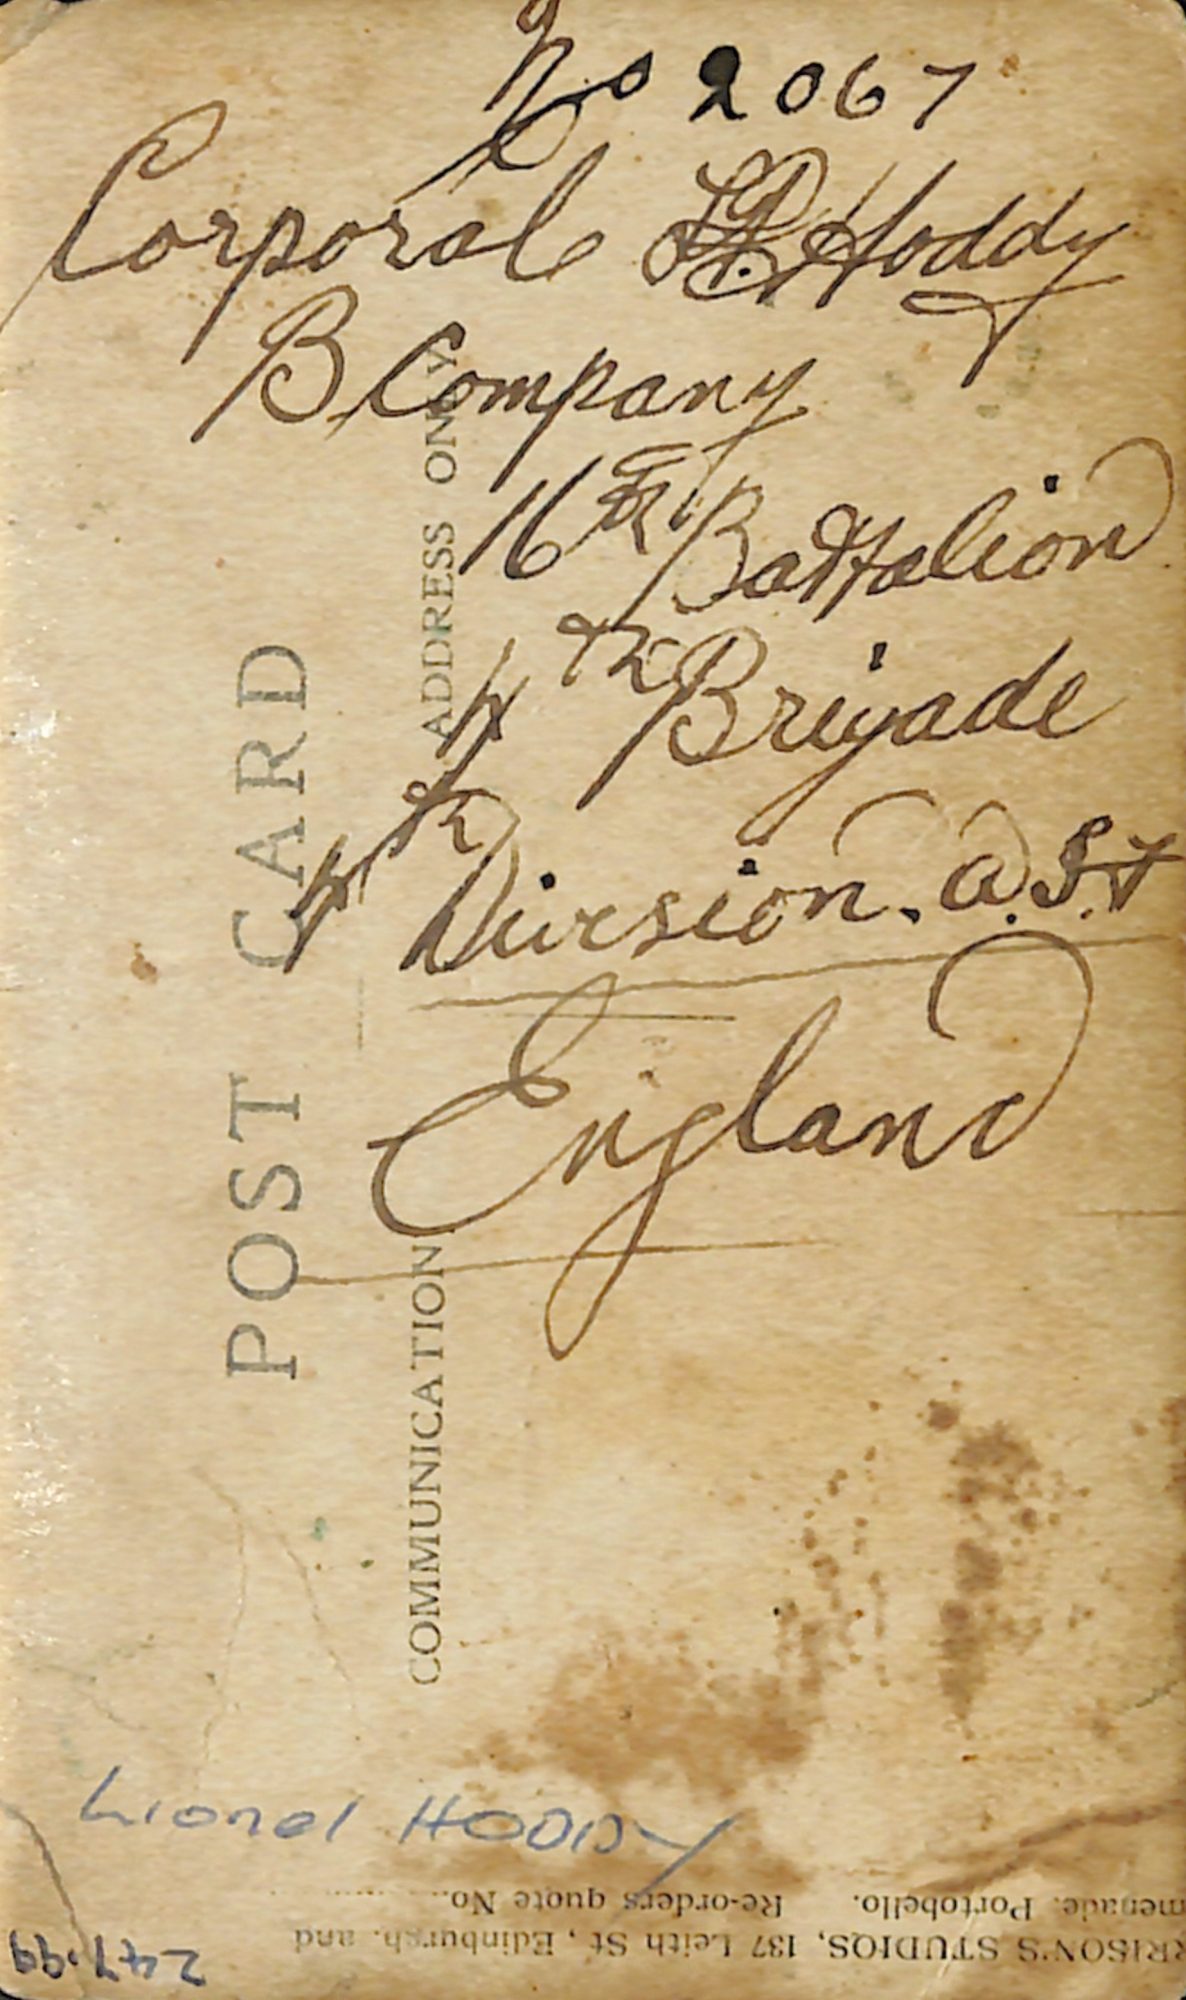 No 2067
Corporal L.P. Hoddy
B Company
16th Battalion
4th Brigade
4th Division. A.I.F
England
POST CARD
ADDRESS ONLY
COMMUNICATION
Lionel HODDY
RRISON'S STUDIOS, 137 Leith St, Edinburgh. and
menade. Portobello. Re-orders quote No.
247.99